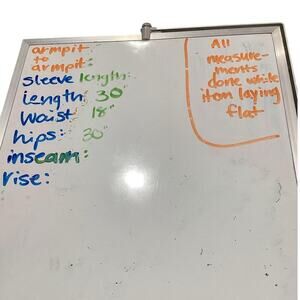 armpit
to
armpit:
sleeve length:
length: 30"
Waist: 18"
hips: 30"
inseam:
rise:
All
measure-
ments
done while
item laying
flat